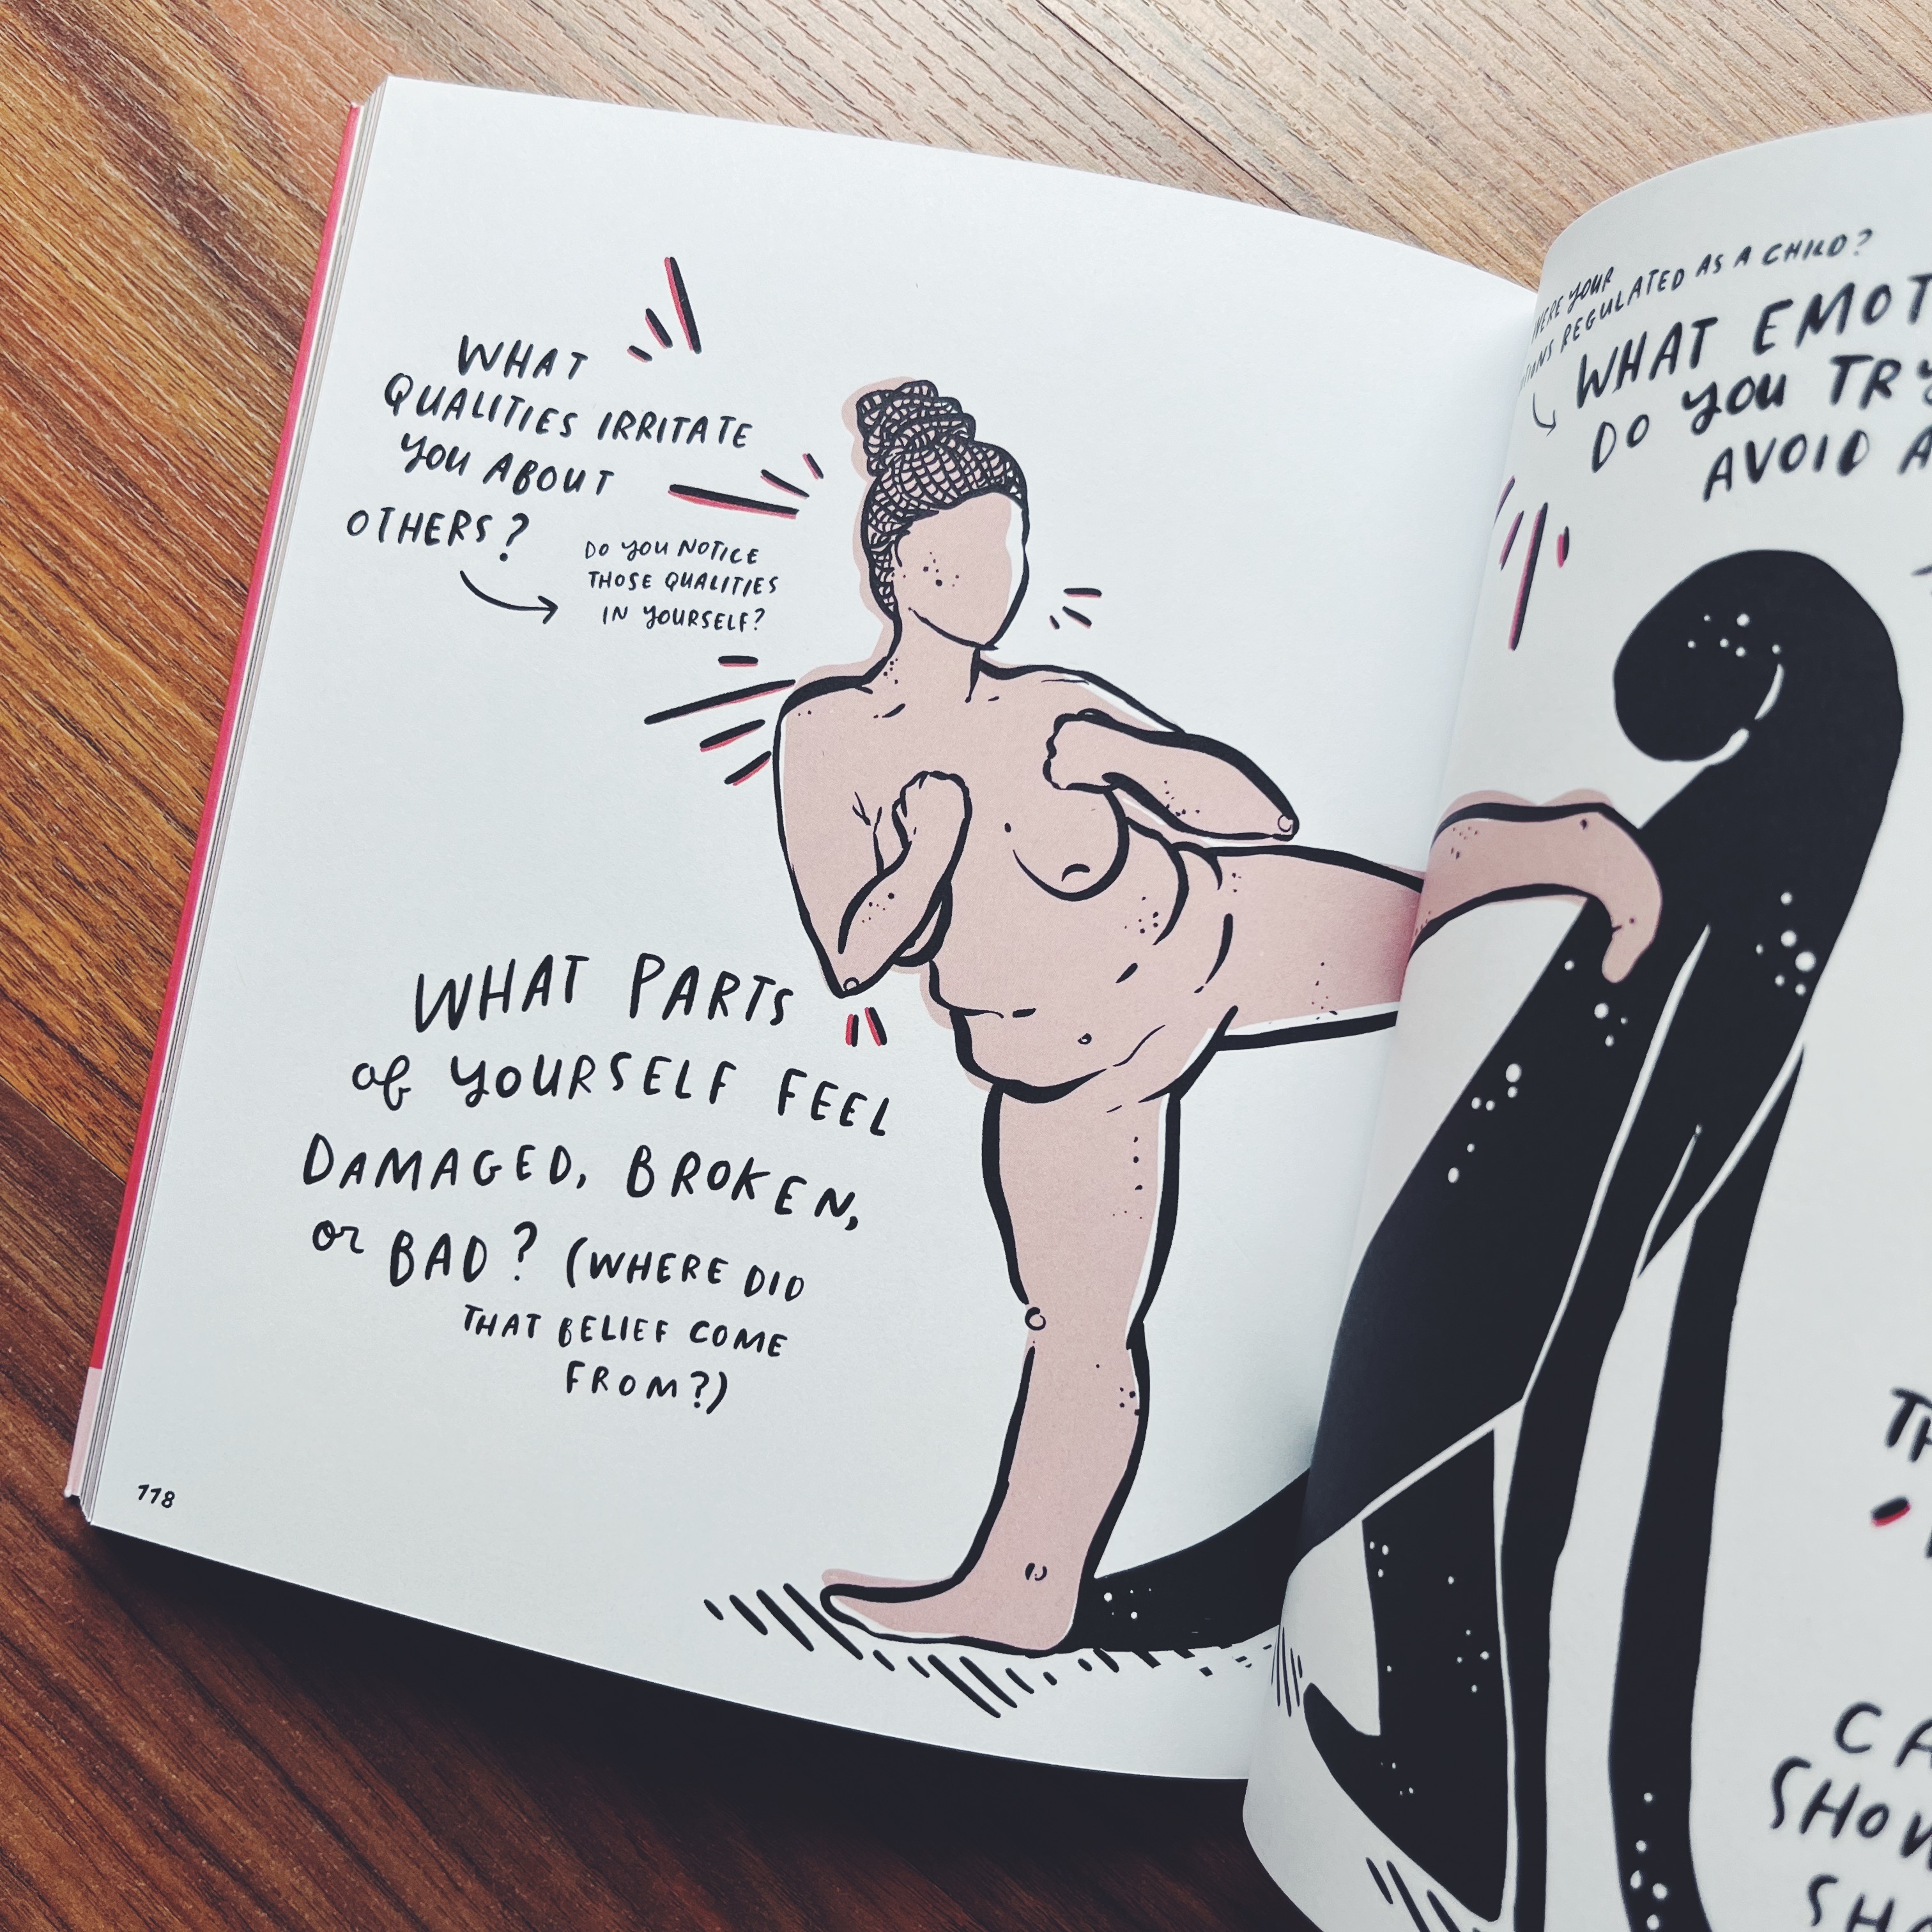 WHAT
QUALITIES IRRITATE
YOU ABOUT
OTHERS?
DO YOU NOTICE
THOSE QUALITIES
IN YOURSELF?
WHAT PARTS
of YOURSELF FEEL
DAMAGED, BROKEN,
or BAD? (WHERE DID
THAT BELIEF COME
FROM?)
118
YOUR
REGULATED AS A CHILD?
WHAT
DO YOU
AVOID